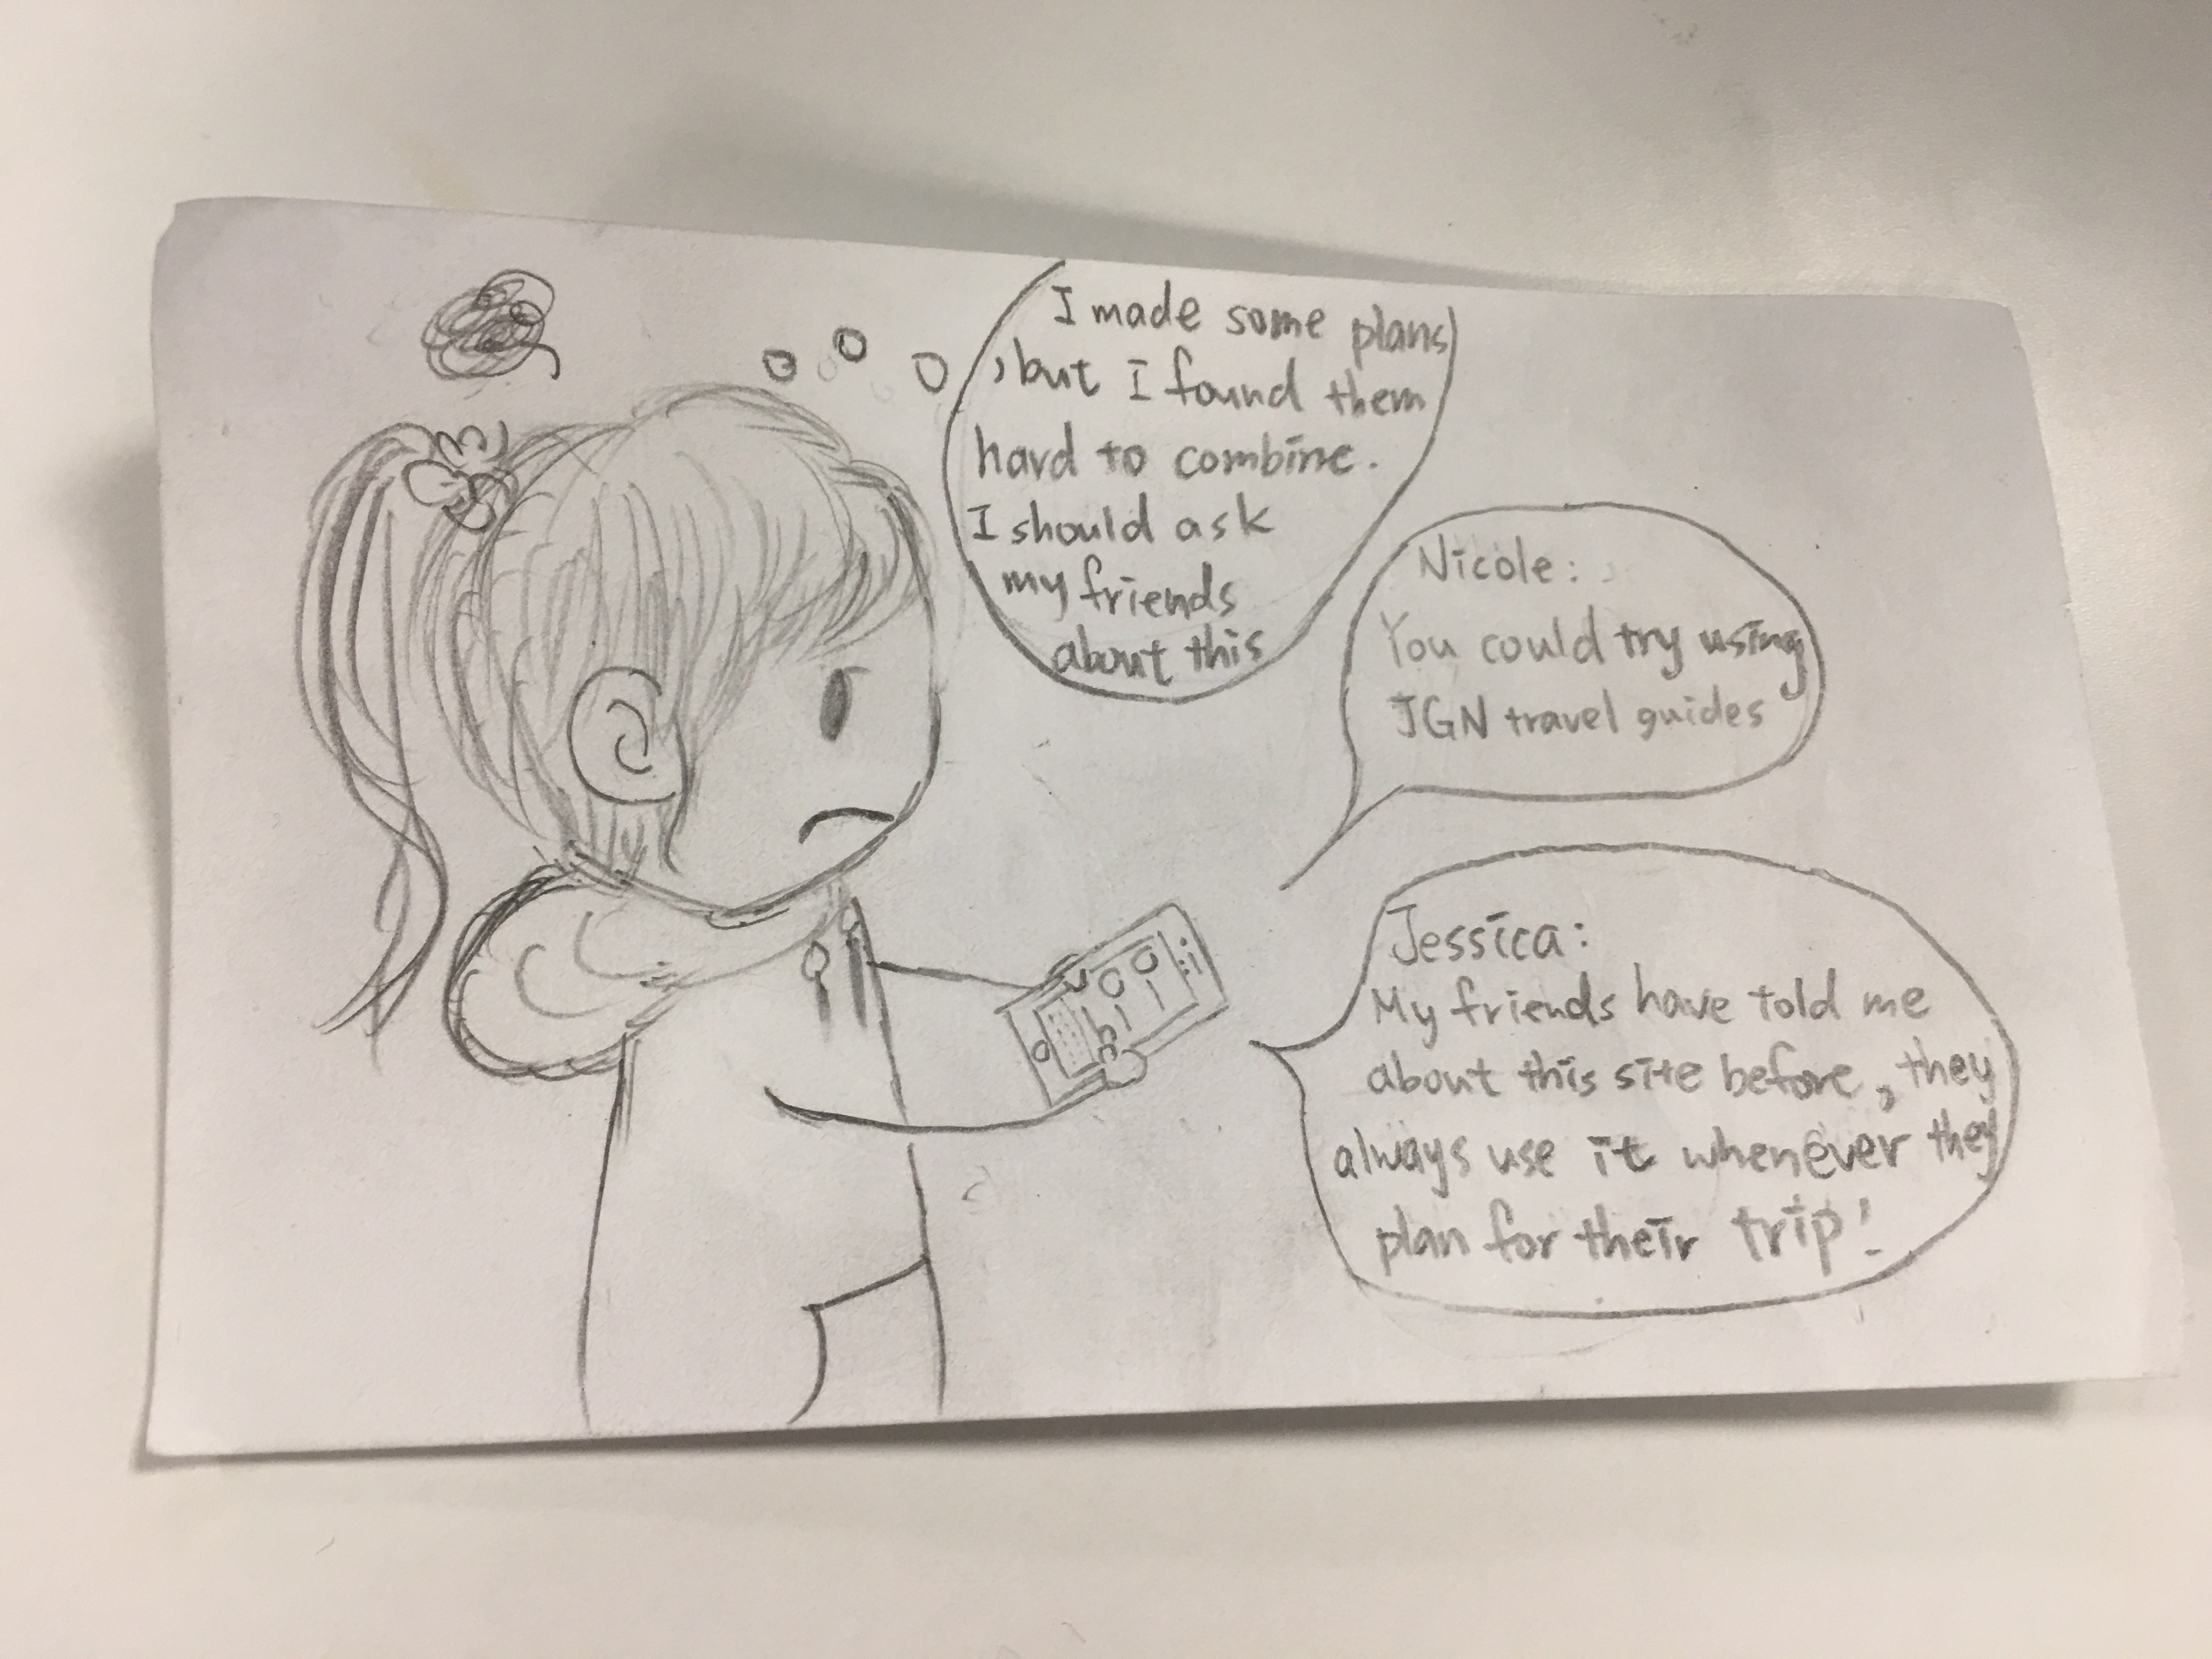 I made some plans
, but I found them
hard to combine.
I should ask
my friends
about this
Nicole:
You could try using
JGN travel guides
Jessica:
My friends have told me
about this site before, they
always use it whenever they
plan for their trip!
hi